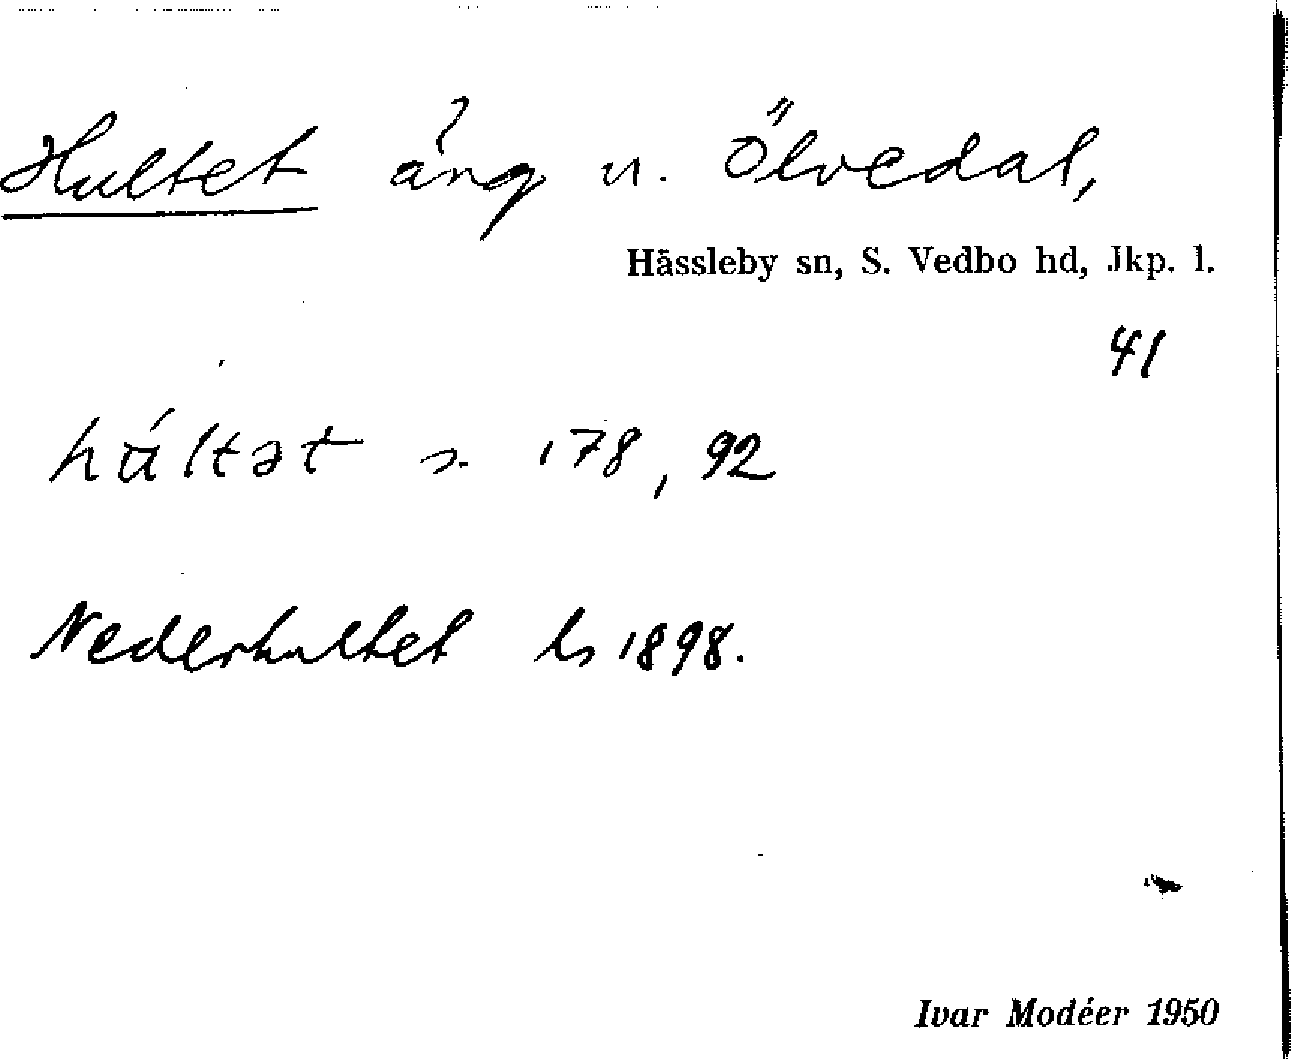 Hultet äng u. Ölvedal,
Hässleby sn, S. Vedbo hd, Jkp. l.
41
húltət s. 178, 92
Nederhultet ls 1898.
Ivar Modéer 1950